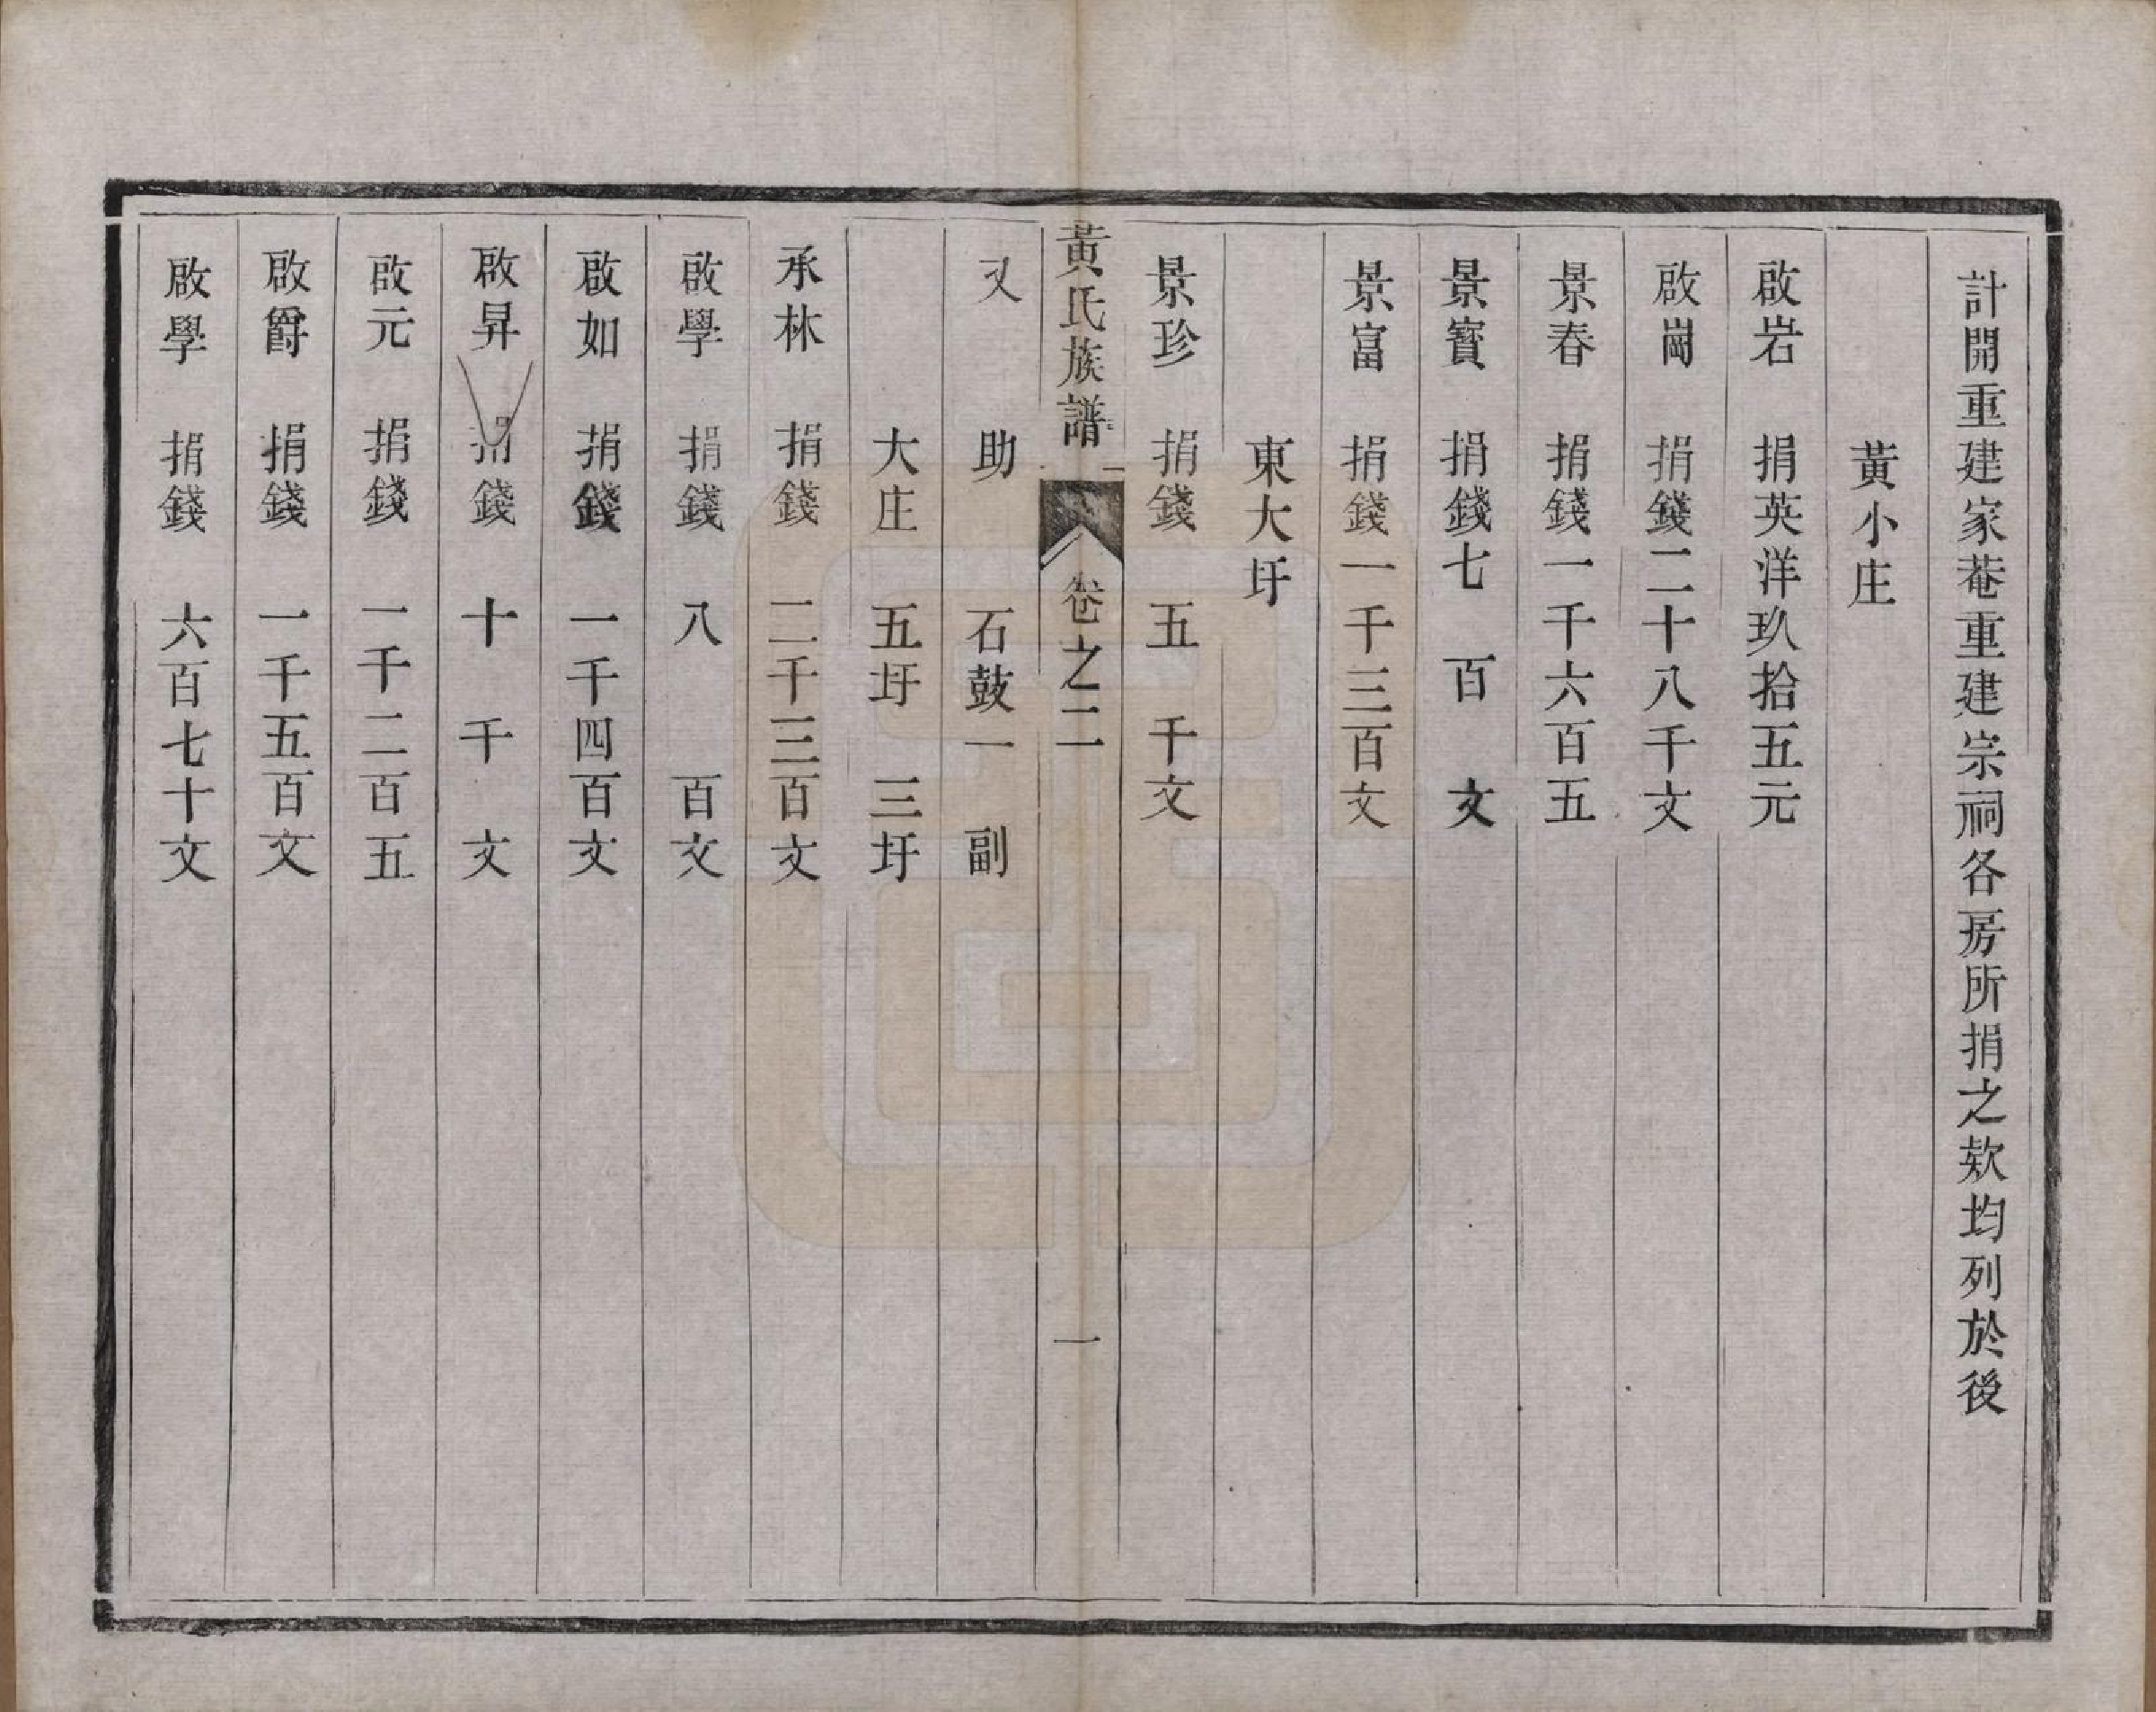 計開重建家菴重建宗祠各房所捐之欵均列於後
黃小庄
啟岩 捐英洋玖拾五元
啟崗 捐錢二十八千文
景春 捐錢一千六百五
景寶 捐錢七百文
景富 捐錢一千三百文
東大圩
景珍 捐錢五千文
黃氏族譜 卷之二 一
又 助 石鼓一副
大庄 五圩 三圩
承林 捐錢 二千三百文
啟學 捐錢 八百文
啟如 捐錢 一千四百文
啟昇 捐錢 十千文
啟元 捐錢 一千二百五
啟爵 捐錢 一千五百文
啟學 捐錢 六百七十文